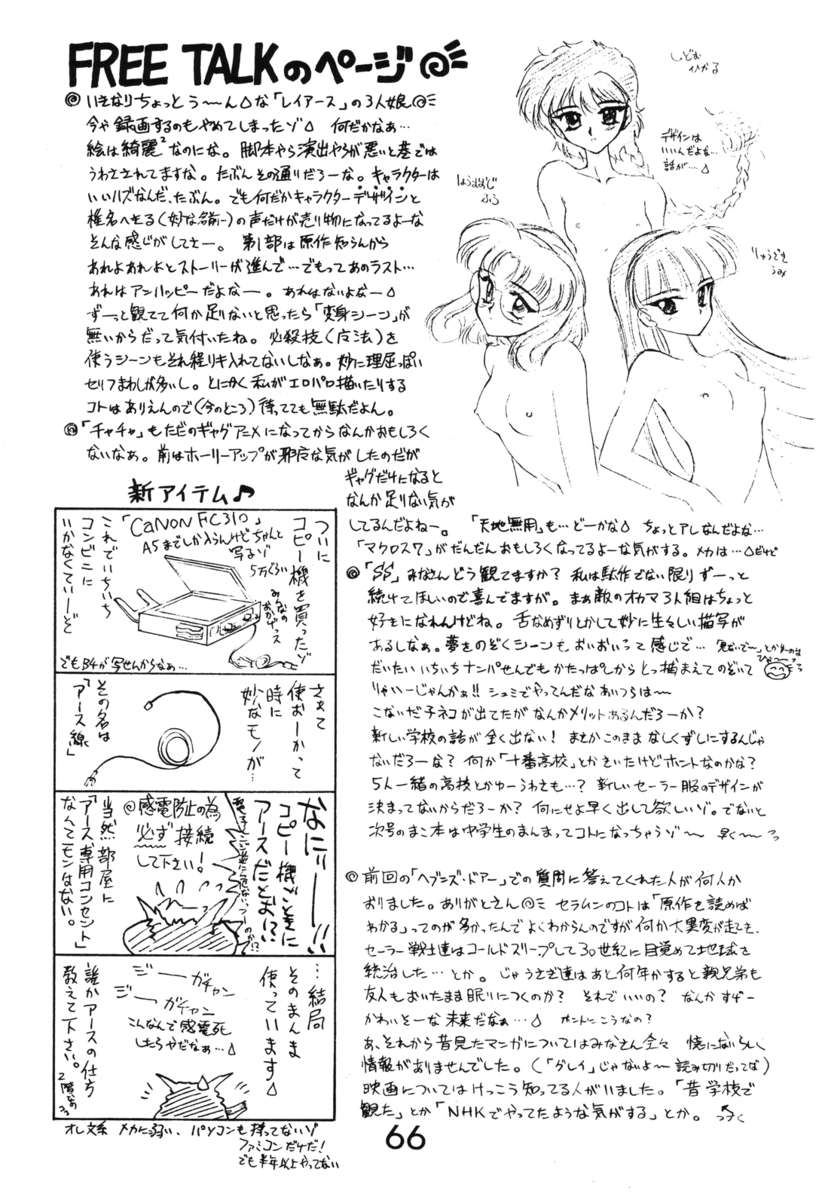 FREE TALKのページ
◎いきなりちょっとう〜ん△な「レイアース」の3人娘
今や録画するのもやめてしまったゾ△ 何だかなぁ…
絵は綺麗²なのにな。脚本やら演出やらが悪いと巷では
うわさされてますな。たぶんその通りだろーな。キャラクターは
いいハズなんだ、たぶん。でも何だかキャラクターデザインと
椎名へきる(妙な名前ー)の声だけが売り物になってるよーな
そんな感じがしてさー。第1部は原作知らんから
あれよあれよとストーリーが進んで…でもってあのラスト…
あれはアンハッピーだよなー。あれはないよなー△
ずーっと観てて何か足りないと思ったら「変身シーン」が
無いからだって気付いたね。必殺技(魔法)を
使うシーンもそれ程リキ入れてないしなぁ。妙に理屈っぽい
セリフまわしが多いし。とにかく私がエロパロ描いたりする
コトはありえんので(今のところ)待ってても無駄だよん。
◎「チャチャ」もただのギャグアニメになってからなんかおもしろく
ないなぁ。前はホーリーアップが邪魔な気がしたのだが
ギャグだけになると
なんか足りない気が
してるんだよねー。「天地無用」も…どーかな△ ちょっとアレなんだよな…
「マクロス7」がだんだんおもしろくなってるよーな気がする。メカは…△だけど
しどう
ひかる
デザインは
いいんだよな…
話が…△
ほうおうじ
ふう
りゅうざき
うみ
◎「SS」みなさんどう観てますか? 私は駄作でない限りずーっと
続けてほしいので喜んでますが。まぁ敵のオカマ3人組はちょっと
好きになれんけどね。舌なめずりとかして妙に生々しい描写が
あるしなぁ。夢をのぞくシーンもおいおいって感じで…
だいたいいちいちナンパせんでもかたっぱしからとっ捕まえてのぞいて
りゃいーじゃんかぁ!! シュミでやってんだなあいつらは〜
こないだ子ネコが出てたがなんかメリットあるんだろーか?
新しい学校の話が全く出ない! まさかこのままなしくずしにするんじゃ
ないだろーな? 何か「十番高校」とかきいたけどホントなのかな?
5人一緒の高校とかゆーうわさも…? 新しいセーラー服のデザインが
決まってないからだろーか? 何にせよ早く出して欲しいゾ。でないと
次号のまこ本は中学生のまんまってコトになっちゃうゾ〜 早く〜
◎前回の「ヘブンズ・ドアー」での質問に答えてくれた人が何人か
おりました。ありがとさん セラムンのコトは「原作を読めば
わかる」ってのが多かったんでよくわからんのですが何か大異変が起きて、
セーラー戦士達はコールドスリープして30世紀に目覚めて地球を
統治した…とか。じゃうさぎ達はあと何年かすると親兄弟も
友人もおいたまま眠りにつくのか? それでいいの? なんかすげー
かわいそーな未来だなぁ…△ ホントにこうなの?
あ、それから昔見たマンガについてはみなさん全々 憶にないらしく
情報がありませんでした。(「グレイ」じゃないよ〜読み切りだってな)
映画についてはけっこう知ってる人がいました。「昔学校で
観た」とか「NHKでやってたような気がする」とか。
新アイテム♪
ついに
コピー機を買ったゾ
「CaNON FC310」
A5までしか入らんけどちゃんと
写るゾ
5万ぐらい
みんなの
おかげっス
これでいちいち
コンビニに
いかなくていーゾと
でもB4が写せんからなぁ…
さぁて
使おーかって
時に
妙なモノが…
その名は
「アース線」
なにィーー!!
コピー機ごときに
アースだとぉ!?
@感電防止の為
必ず接続
して下さい!
当然部屋に
「アース専用コンセント」
なんてモンはない。
…結局
そのまんま
使っています△
ジーーガチャン
ジーーガチャン
こんなんで感電死
したらやだなぁ…△
誰かアースの仕方
教えて下さい。
2階なの
オレ文系 メカに弱い、パソコンも持ってないゾ
ファミコンだけだ!
でも半年以上やってない
66